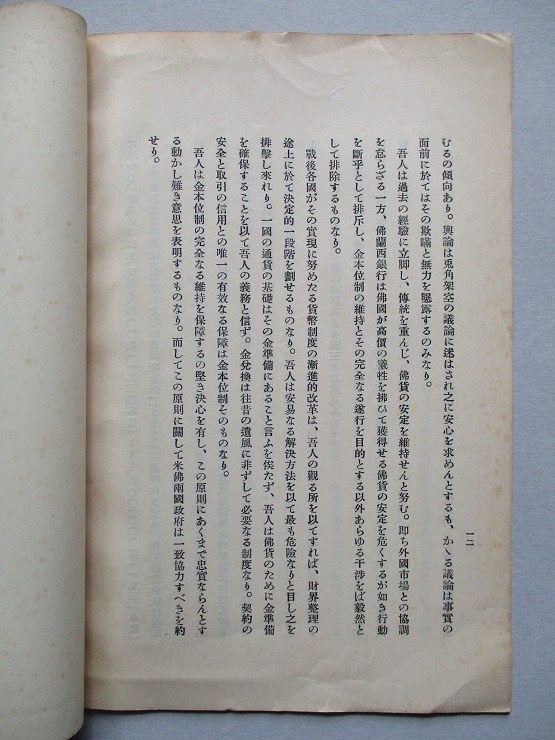 一二
むるの傾向あり。輿論は兎角架空の議論に迷はされ之に安心を求めんとするも、かゝる議論は事實の
面前に於てはその欺瞞と無力を曝露するのみなり。
吾人は過去の經驗に立脚し、傳統を重んじ、佛貨の安定を維持せんと努む。卽ち外國市場との協調
を怠らざる一方、佛蘭西銀行は佛國が高價の犧牲を拂ひて獲得せる佛貨の安定を危くするが如き行動
を斷乎として排斥し、金本位制の維持とその完全なる遂行を目的とする以外あらゆる干涉をば毅然と
して排除するものなり。
戰後各國がその實現に努めたる貨幣制度の漸進的改革は、吾人の觀る所を以てすれば、財界整理の
途上に於て決定的一段階を劃せるものなり。吾人は安易なる解決方法を以て最も危險なりと目し之を
排擊し來れり。一國の通貨の基礎はその金準備にあること言ふを俟たず、吾人は佛貨のために金準備
を確保することを以て吾人の義務と信ず。金兌換は往昔の遺風に非ずして必要なる制度なり。契約の
安全と取引の信用との唯一の有效なる保障は金本位制そのものなり。
吾人は金本位制の完全なる維持を保障するの堅き決心を有し、この原則にあくまで忠實ならんとす
る動かし難き意思を表明するものなり。而してこの原則に關して米佛兩國政府は一致協力すべきを約
せり。